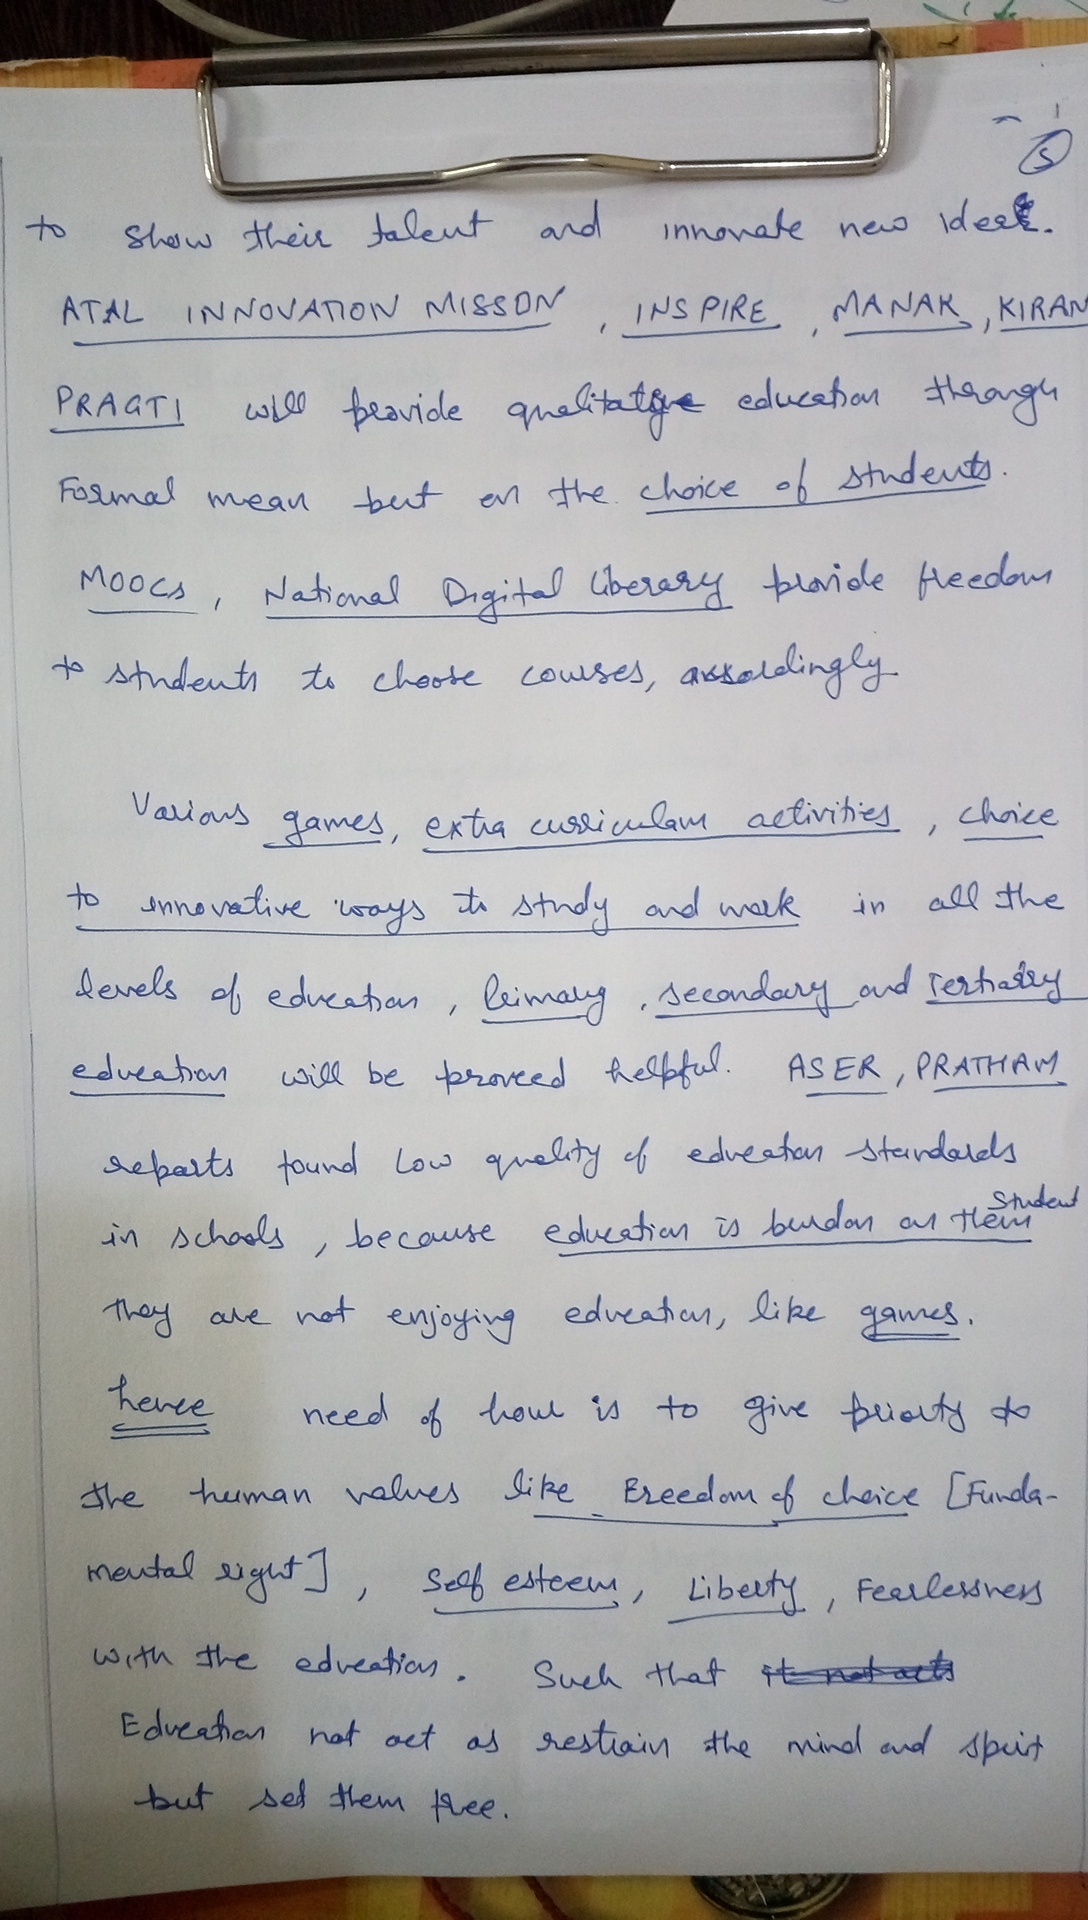 5
to show their talent and innovate new ideas.
ATAL INNOVATION MISSON, INSPIRE, MANAK, KIRAN
PRAGTI will provide qualitative education through
Formal mean but on the choice of students.
MOOCs, National Digital liberary provide freedom
to students to choose courses, accordingly
Various games, extra curriculam activities, choice
to innovative ways to study and work in all the
levels of education, primary, secondary and Tertiary
education will be proved helpful. ASER, PRATHAM
reports found low quality of education standards
in schools, because education is burdon on them Student
they are not enjoying education, like games.
hence need of hour is to give priorty to
the human values like Freedom of choice [Funda-
mental right], Self esteem, Liberty, Fearlessness
with the education. Such that it not acts
Education not act as restrain the mind and spirit
but set them free.